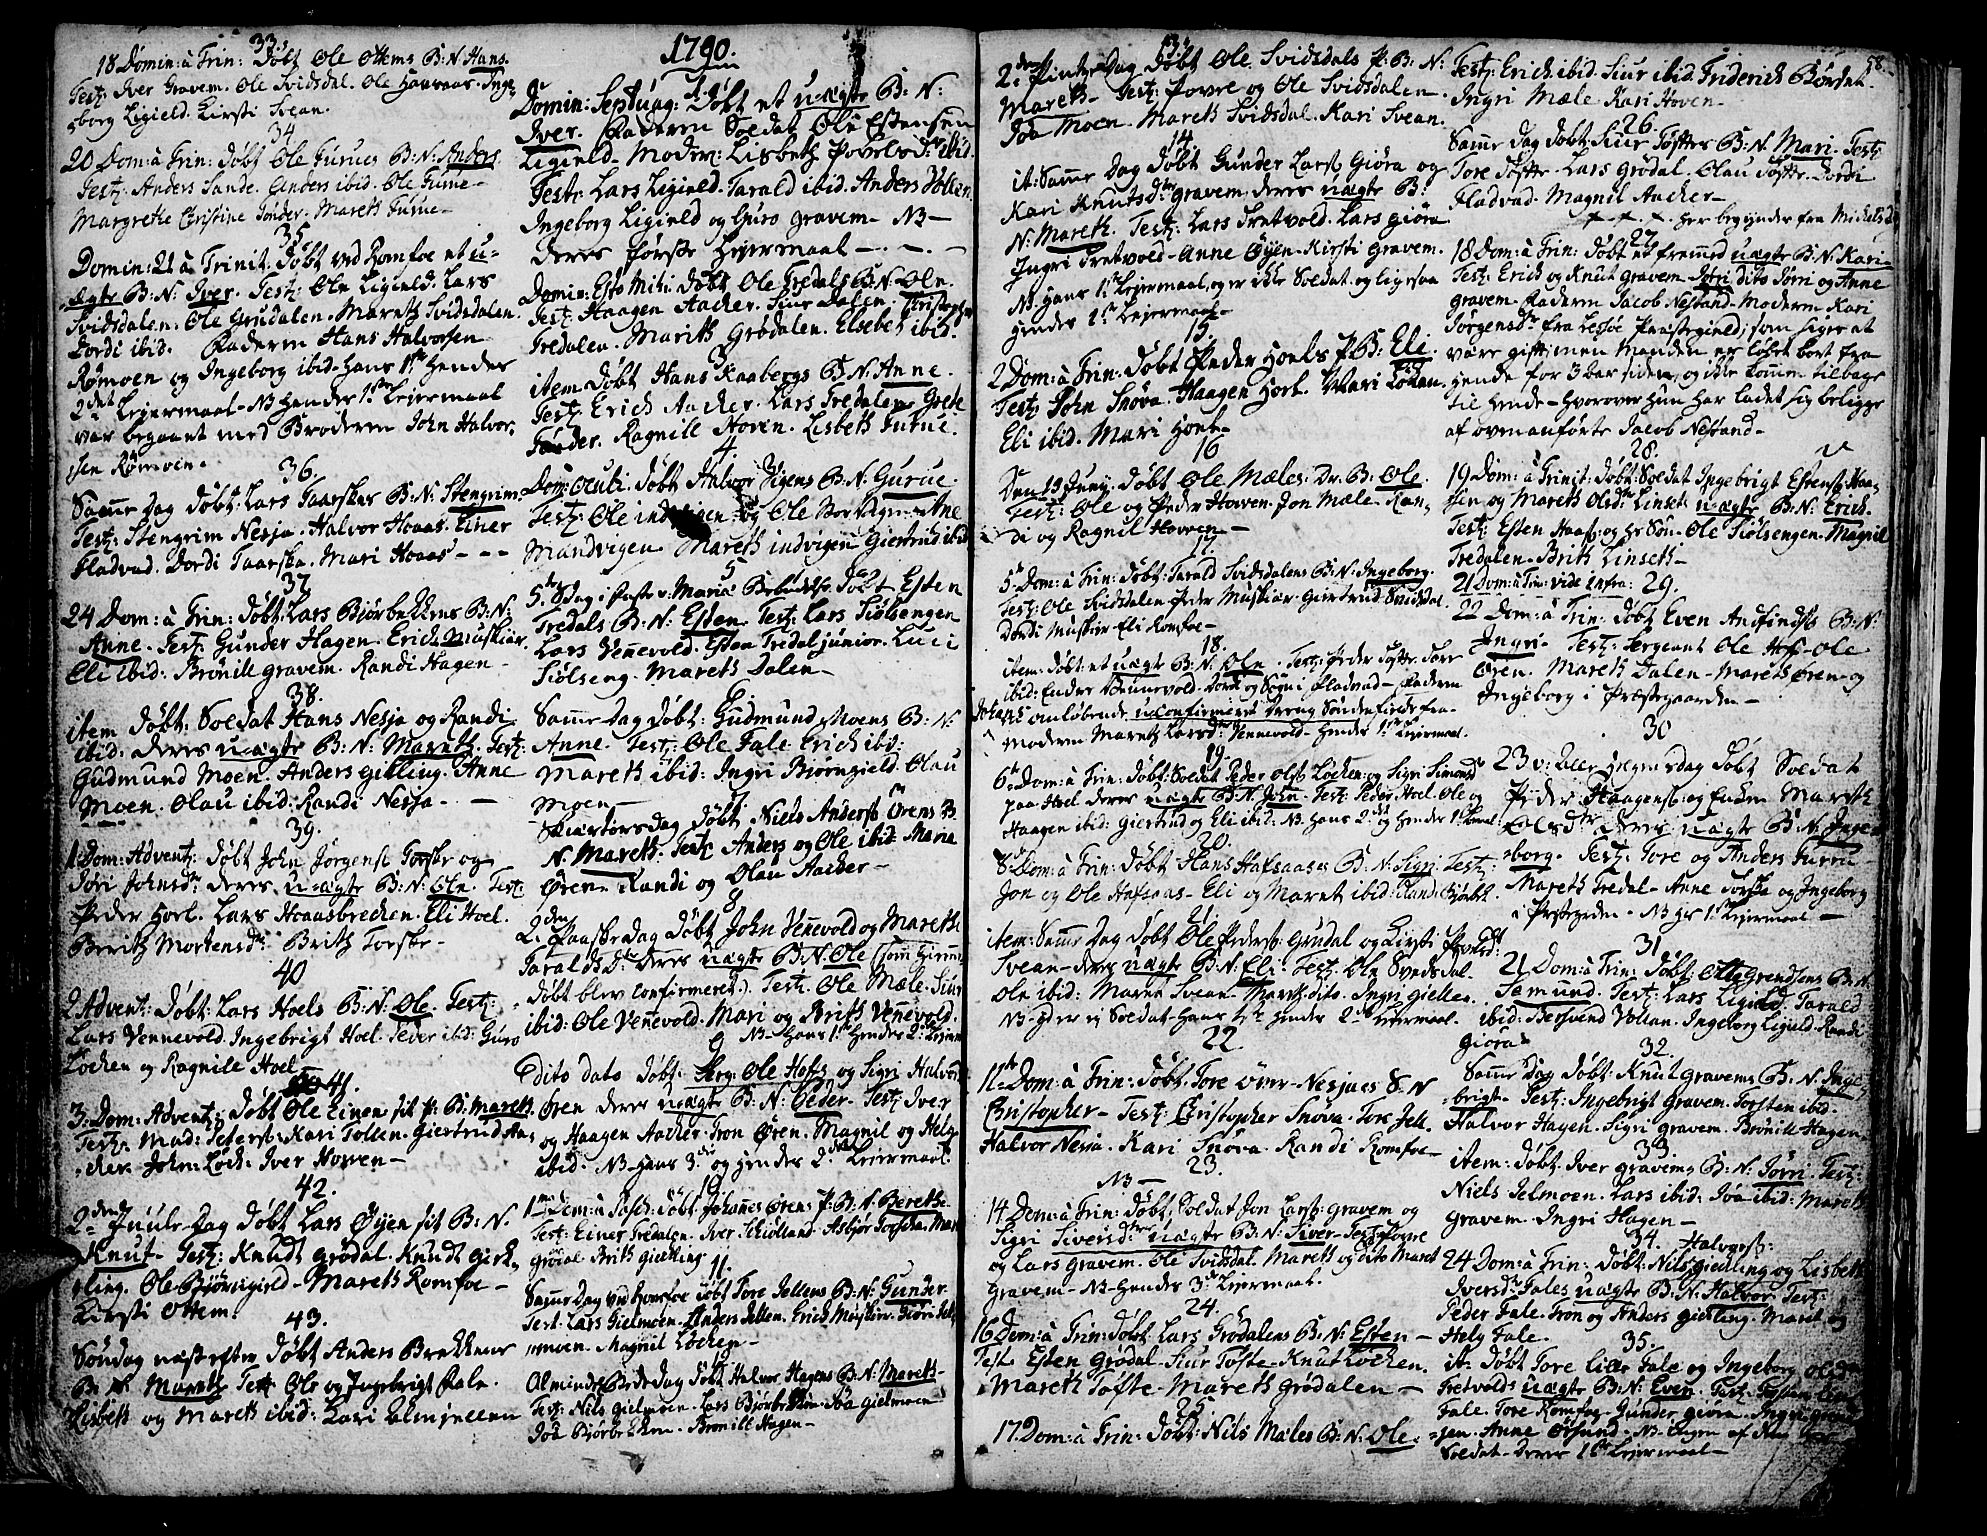 33.
18 Domin: à Trin: Døbt Ole Ottems B:N: Hans.
Test: Iver Gravem. Ole Svidsdal. Ole Haavaas. Inge-
borg Ligield. Kirsti Svean.
34
20 Dom: à Trin: Døbt Ole Furues B:N: Anders
Test: Anders Sande. Anders ibid. Ole Furue-
Margrethe Christine Tønder. Mareth Furue-
35
Domin: 21 à Trinit: Døbt ved Romfoe et u-
ægte B:N: Iver. Test: Ole Ligield. Lars
Svidsdalen: Ole Grudalen. Mareth Svidsdalen.
Dordi ibid. Faderen Hans Halvorsen
Rømoen og Ingeborg ibid. Hans 1ste Hendes
2det Lejermaal- NB Hendes 1ste Lejermaal
var begaaet med Broderen John Halvor-
sen Rømoen.
36.
Samme Dag døbt: Lars Taarskes B:N: Stengrim.
Test: Stengrim Nesja. Halvor Hoaas. Einer
Fladvad. Dordi Taarske. Mari Hoaas - - -
37
24 Dom: à Trin: Døbt: Lars Biørbekkens B:N:
Anne. Test: Gunder Hagen. Erich Muskiær.
Eli ibid: Brønill Gravem. Randi Hagen-
38.
item Døbt: Soldat Hans Nesja og Randi
ibid. deres uægte B:N: Mareth. Test:
Gudmund Moen. Anders Giedling. Anne
Moen. Olau ibid: Randi Nesja- -
39.
1. Dom: Advent: Døbt John Jørgens. Torske og
Jøri Johnsd: deres uægte B:N: Ole. Test:
Peder Hoel. Lars Hoaasbrecken. Eli Hoel.
Berith Mortensd: Brith Torske-
40
2 Advent: Døbt: Lars Hoels B:N: Ole. Test:
Lars Vennevold. Ingebrigt Hoel. Peder ibid: Guro
Løcken og Ragnile Hoel
41.
3. Dom: Advent: Døbt Ole Einers sit P:B: Mareth
Test: Mad: Peters. Kari Tollen. Giertrud Aa-
cker. John: Løck. Iver Hoven-
42.
2den Juule-Dag Døbt Lars Øyen sit B:N.
Knut- Test: Knudt Grødal. Knudt Gied-
ling. Ole Biørngield- Mareth Romfoe-
Kirsti Ottem.
43.
Søndag næst efter Døbt Anders Brekkens
B:N: Mareth Test Ole og Ingebrigt Fale.
Lisbeth og Mareth ibid: Kari

1790.
1.
Domin: Septuag: Døbt et uægte B:N:
Iver. Faderen Soldat Ole Estensen
Ligield- Moder: Lisbeth Povelsd: ibid.
Test: Lars Ligield. Tarald ibid. Anders Vollen.
Ingeborg Ligield og Guro Gravem- NB-
Deres første Lejermaal - . - . -
Domin: Esto Mihi: Døbt Ole Tredals B:N: Ole.
Test: Haagen Aacker. Siur Dalen. Christopher
Tredalen. Marith Grødalen. Elsebeth ibid.
3
item Døbt Hans Kaabergs B:N: Anne.
Test: Erich Aacker. Lars Tredalen. Grete
Tønder. Ragnill Hoven. Lisbeth Furue.
4
Dom: Oculi: Døbt Halvor Vigens B:N: Gurue.
Test: Ole indvigen og Ole Storvigen- Ane
Mandvigen Mareth indvigen Giertrud ibid
5
5. Sdag i Faste v: Mariæ Bebudelse Døbt Esten
Tredals B:N: Esten. Test: Lars Siølsengen
Lars Vennevold. Esten Tredal junior. Luci
Siølseng. Mareth Dalen-
6
Samme Dag Døbt: Gudmund Moens B:N:
Anne. Test: Ole Fale. Erich ibid:
Mareth ibid: Ingri Biørngield. Olau
Moen-
7
Skiærtorsdag Døbt Niels Anders: Ørens B.
N: Mareth. Test: Anders og Ole ibid. Maria
Øren. Randi og Olau Aacker-
8
2den Paaske Dag Døbt John Vennevold og Mareth
Taralds D: deres uægte B:N: Ole (som hjemme
døbt blev confirmeret). Test: Ole Mæle. Siur
ibid: Ole Vennevold. Mari og Brith Vennevold.
NB- Hans 1ste Hendes 2. Lejerm
9
dito dato Døbt. Serg: Ole Hofs og Sigri Halvors
Øren deres uægte B:N: Peder. Test: Iver
og Haagen Aacker. Tron Øren. Magnil og Helg-
ibid. NB Hans 3die og Hendes 2den Lejermaal.
10
1ste Dom: à Pasch: døbt Johannes Ørens P:B:N. Bereth.
Test: Einer Tredalen. Iver Schiolland. Asbjør Torske. Mar-
Grødal. Brith Giedling
11.
Samme Dag ved Hvarfoe døbt Tore Jellens B:N: Gunder
Test. Lars Gielmoen. Anders Jellen. Erich Muskiær. Giøri Jel-
moen. Magnil Løcken-
Alminde Bede Dag Døbt Halvor Hagens B:N: Mareth-
Test: Nils Gielmoen. Lars Biørbekken. Joa Gielmoen
Joa Biørbekken. Brønill Hagen-

13.
2den Pintse Dag Døbt Ole Svidsdals P:B:N:
Mareth- Test: Povre og Ole Svidsdalen.
Joa Moen. Mareth Svidsdal. Kari Svean.
14
it: Samme Dag døbt Gunder Lars: Giøra og
Kari Knutsd: Gravem. deres uægte B:
N: Mareth. Test: Lars Tretvold. Lars Giøra
Ingri Tretvold- Anne Øyen- Kirsti Gravem.
NB Hans 1ste Lejermaal, og er ikke Soldat- og ligesaa
Hendes 1ste Lejermaal-
15
2 Dom: à Trin: Døbt Peder Hoels P:B: Eli
Test: John Snøva. Haagen Hoel. Mari Løken
Eli ibid. Mari Hoel-
16
Den 19 Juny. Døbt Ole Mæles: Dr: B: Ole.
Test: Ole og Peder Hoven. Jon Mæle. Ran-
di og Ragnil Hoven-
17
5te Dom: à Trin: Døbt: Tarald Svidsdalens B:N: Ingeborg.
Test: Ole Svidsdalen- Peder Muskiær. Giertrud Svidsdal.
Dordi Muskiær Eli Romfoe-
18.
item: døbt et uægte B:N: Ole. Test: Peder Tofte. Tore
ibid: Ender Vennevold. Dordi og Sigri Fladvad- Faderen
Johans omløbende uconfirmeret Dreng Søndenfields fra-
Moderen Mareth Larsd: Vennevold- Hendes 1ste Lejermaal.
19
6te Dom: à Trin: Døbt: Soldat Peder Ols: Løcken- og Sigri Simonsd:
paa Hoel deres uægte B:N: John. Test: Peder Hoel. Ole og
Haagen ibid: Giertrud og Eli ibid: NB Hans 2. og Hendes 1ste Lejermaal.
20
8de Dom: à Trin: Døbt Hans Hafsaases B:N: Sigri: Test:
Jon og Ole Hafsaas- Eli og Maret ibid: Randi Biørbek.
21
item: Samme Dag Døbt Ole Peders: Grudal og Kirsti Povelsd:
Svean- deres uægte B:N: Eli- Test: Ole Svedsdal.
Ole ibid: Maret Svean- Mareth dito. Ingri Gielten.
NB- Er ej Soldat- Hans 1te Hendes 2de Lejermaal.
22.
11te Dom: à Trin: Døbt: Tore Over-Nesjaes B.N
Christopher- Test: Christopher Snøva- Tore Jell.
Halvor Nesja- Kari Snøva. Randi Romfoe-
23.
NB-
14. Dom: à Trin: Døbt: Soldat Jon Lars: Gravem og
Sigri Siversd: uægte B:N: Siver- Test: Povre
og Lars Gravem. Ole Svidsdal. Mareth og dito Maret
Gravem- NB- Hendes 3die Lejermaal.
24.
16 Dom: à Trin: Døbt: Lars Grødalens B:N: Esten-
Test Esten Grødal- Siur Tofte- Knut Løcken.
Mareth Tofte- Mareth Grødalen-
25
17. Dom: à Trin: Døbt: Nils Mæles B:N: Ole.

58.
Test: Erich ibid. Siur ibid. Friderich Bøndet-
Ingri Mæle. Kari Hoven-
26.
Samme Dag døbt: Siur Tofttes B:N Mari. Test:
Tore Tofte- Lars Grødal. Olau Tofte. Dordi
Fladvad- Magnil Aacker-
+. +. +. Her begynder fra Michelsd
27
18 Dom: à Trin: Døbt et fremmed uægte B:N: Kari-
Test: Erich og Knut Gravem. Jøri dito Jørri og Anne
Gravem- Faderen Jacob Nestand- Moderen Kari
Jørgensd: fra Lessøe Præstegield; som siger at
være gift; men Manden er løbet bort fra
Hende for 3 aar siden, og ikke kommen tilbage
til Hende- Hvorover Hun har ladet sig beligge
af ovenanførte Jacob Nestand-
28.
19 Dom: à Trinit: Døbt: Soldat Ingebrigt Estens. Haa-
sen og Mareth Olsd: Linset uægte B:N: Erich.
Test: Esten Haas- og Hs Søn- Ole Siølsengen. Magnil
Tredalen. Brith Linseth-
21 Dom: à Trin: vide infra: 29.
22 Dom: à Trin: Døbt Even Andfinds B:N:
Ingri- Test: Sergeant Ole Hofs- Ole
Øren. Mareth Dalen- Mareth Øren- og
Ingeborg i Præstegaarden-
30
23 v: Aller Helgensdag Døbt Soldat
Peder Haagens: og Enken Mareth
Olsd: deres uægte B:N: Inge-
borg. Test: Tore og Anders Furru-
Mareth Tredal- Anne Torske og Ingeborg
i Præstegrden- NB Hs 1ste Lejermaal-
31
21 Dom: à Trin: Døbt: Otto Grendsens B:N
Semund. Test: Lars Ligield. Tarald
ibid: Bersvend Vollan. Ingeborg Ligield. Randi
Giøra-
32.
Samme Dag døbt: Knut Gravems B:N. Inge-
brigt- Test: Ingebrigt Gravem. Torsten ibid-
Halvor Hagen. Sigri Gravem. Brønill Hagen
33.
item: Døbt. Iver Gravems B:N: Jørri. Test:
Niels Jelmoen. Lars ibid: Joa ibid: Mareth
Gravem. Ingri Hagen-
34. Halvors:
24 Dom: à Trin: Døbt: Nils Giedling og Lisbeth
Iversd: Fales uægte B:N: Halvor Test:
Peder Fale. Tron og Anders Gielting. Maret og
Hely Fale.
35.
it. Døbt Tore lille Fale og Ingeborg Olsd:
Tretvolds uægte B:N: Even. Test: Torsten
Fale. Tore Romfoe- Gunder Giøra- Ingri
Anne Ørsund- NB- Ingen af dem
Soldat- Deres 1ste Lejermaal-